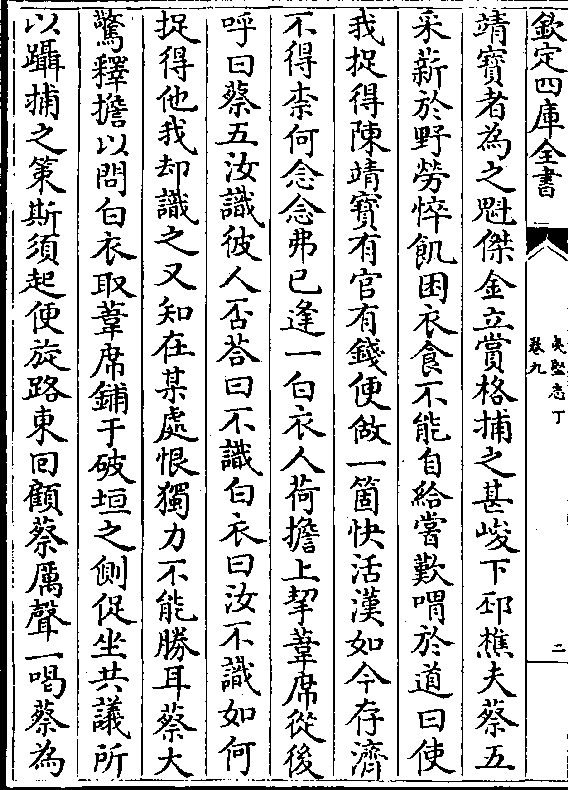 欽定四庫全書
夷堅志丁
卷九
二
靖寶者為之魁傑金立賞格捕之甚峻下邳樵夫蔡五
采薪於野勞悴飢困衣食不能自給嘗歎喟於道曰使
我捉得陳靖寶有官有錢便做一箇快活漢如今存濟
不得柰何念念弗已逢一白衣人荷擔上挈葦席從後
呼曰蔡五汝識彼人否荅曰不識白衣曰汝不識如何
捉得他我却識之又知在某處恨獨力不能勝耳蔡大
驚釋擔以問白衣取葦席鋪于破垣之側促坐共議所
以躡捕之策斯須起便旋路東回顧蔡厲聲一喝蔡為